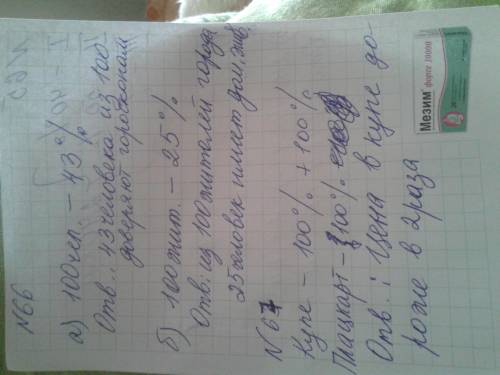 N66
а) 100чел. – 43%
Отв.: 43 человека из 100
доверяют горожанам
б) 100жит. – 25%
Отв: из 100 жителей города
25 человек имеет дом. жив.
N67
Купе – 100% + 100%
Плацкарт – 100%
Отв.: Цена в купе до
роже в 2 раза
Мезим форте 10000